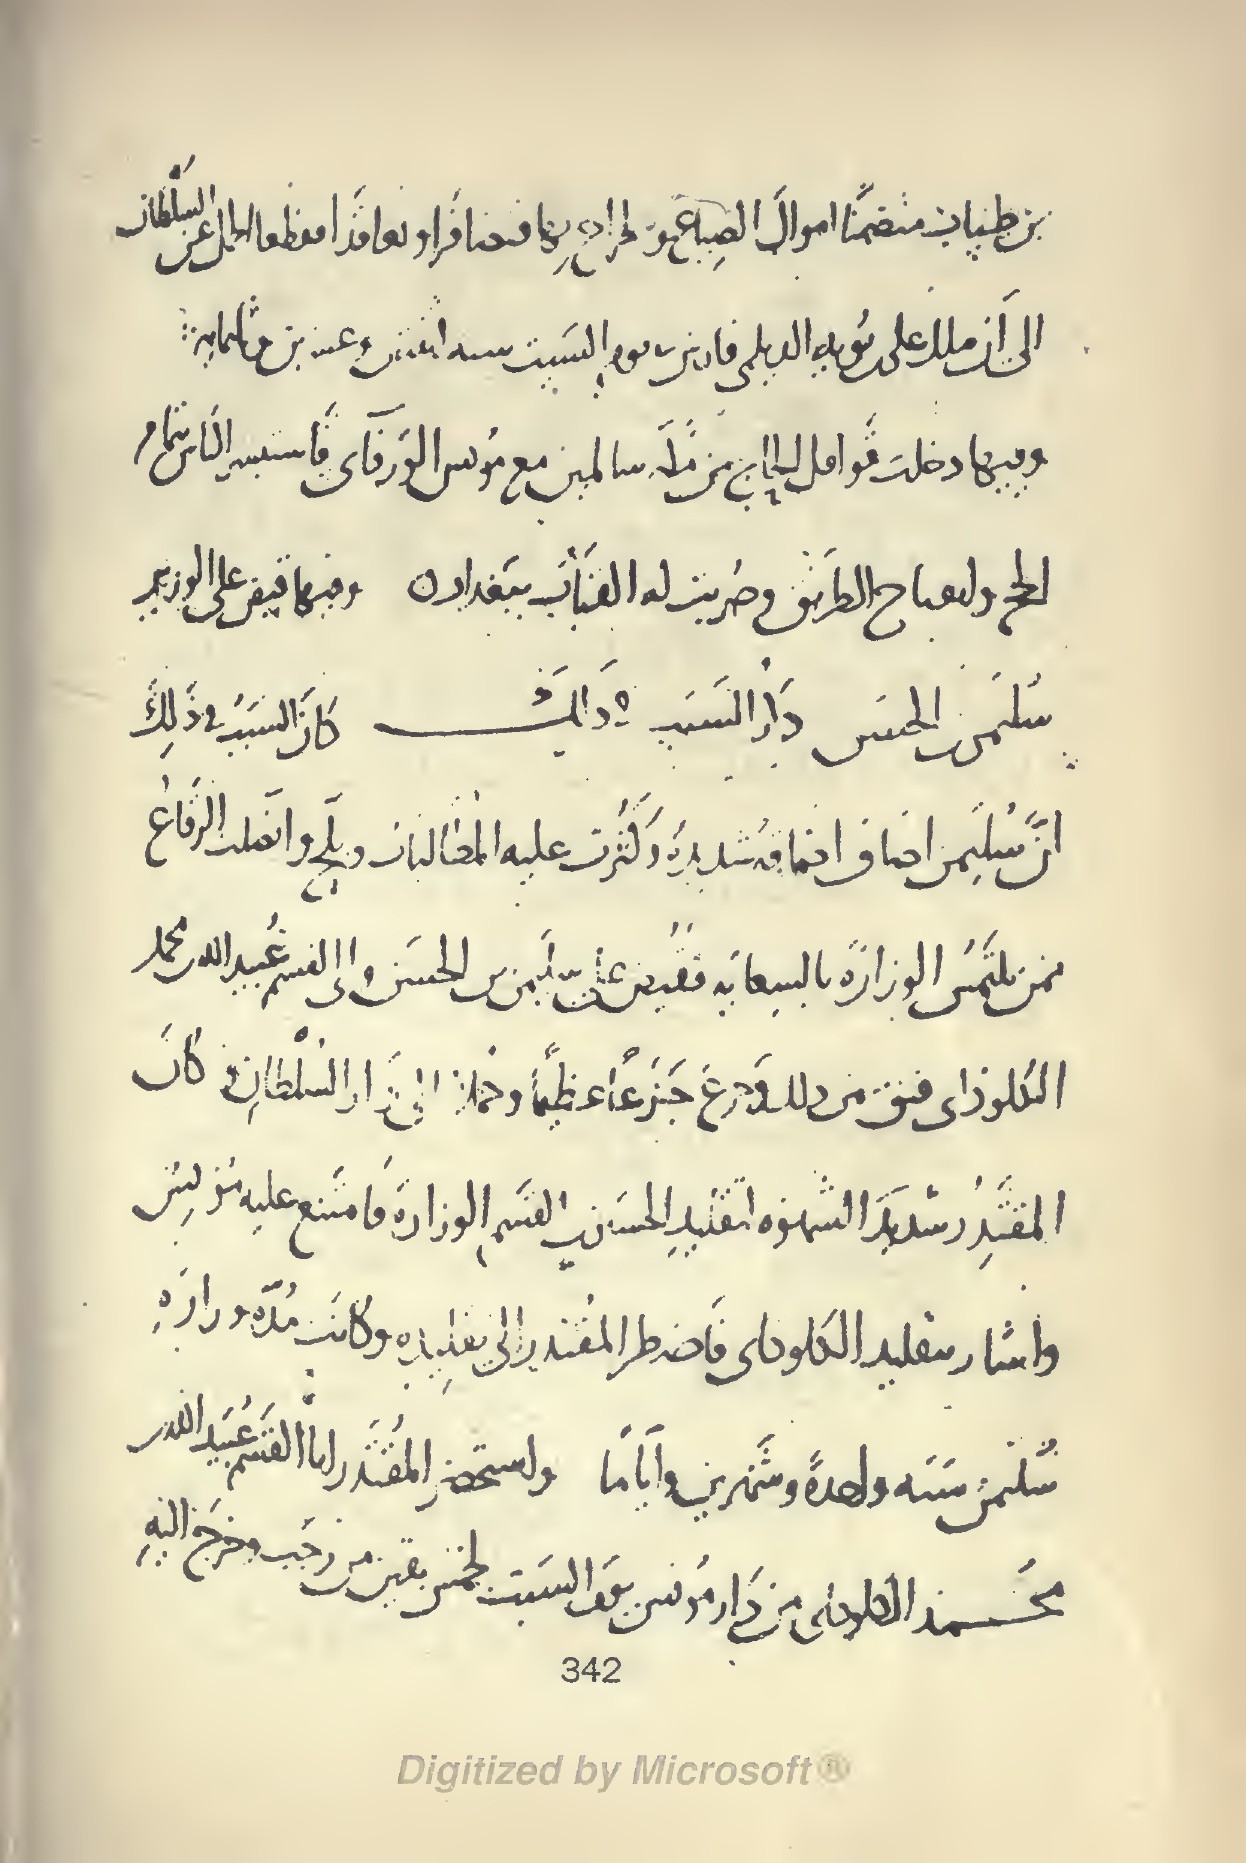 بن طناب متضمنا اموال الضياع والخراج بها فتضافرا وتعاقدا وقطعا الحمل عن السلطان
الى ان ملك علي بن بويه الديلمي فارس يوم السبت سنه اثنتين وعشرين وثلثمايه
وفيها دخلت قوافل الحاج من مكه سالمين مع مونس الورقاي فاستبشر الناس بتمام
الحج وانفتاح الطريق وضربت له القباب ببغداد ن وفيها قبض على الوزير
سليمن بن الحسن ذكر السبب في ذلك كان السبب في ذلك
ان سليمن اضاق اضاقه شديده وكثرت عليه المطالبات وبلح واتصلت الرقاع
ممن يلتمس الوزاره بالسعايه فقبض على سليمن بن الحسن وابي القسم عبيد الله بن محمد
الكلوذاي من ذلك وجزع جزعا عظيما وحملا الى دار السلطان و كان
المقتدر شديد الشهوه لتقليد الحسين بن القسم الوزاره فامتنع عليه مونس
واشار بتقليد الكلوذاي فاضطر المقتدر الى تقليده وكانت مده وزاره
سليمن سنه واحده وشهرين واياما واستحضر المقتدر ابا القسم عبيد الله بن
محمد الكلوذاي من دار مونس يوم السبت لخمس بقين من رجب وخرج اليه
342
Digitized by Microsoft®